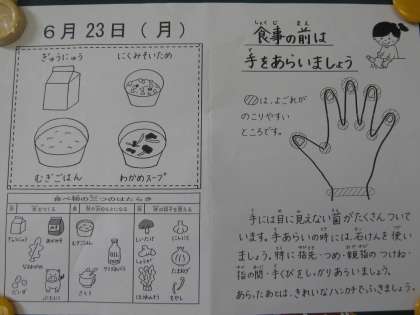 6月23日(月)
ぎゅうにゅう
にくみそいため
むぎごはん
わかめスープ
食べ物の三つのはたらき
しょくじ
まえ
食事の前は
手をあらいましょう
は、よごれが
のこりやすい
ところです。
手には目に見えない菌がたくさんついて
います。手あらいの時には、石けんを使い
ましょう。特に指先・つめ・親指のつけね・
指の間・手くびをしっかりあらいましょう。
あらったあとは、きれいなハンカチでふきましょう。